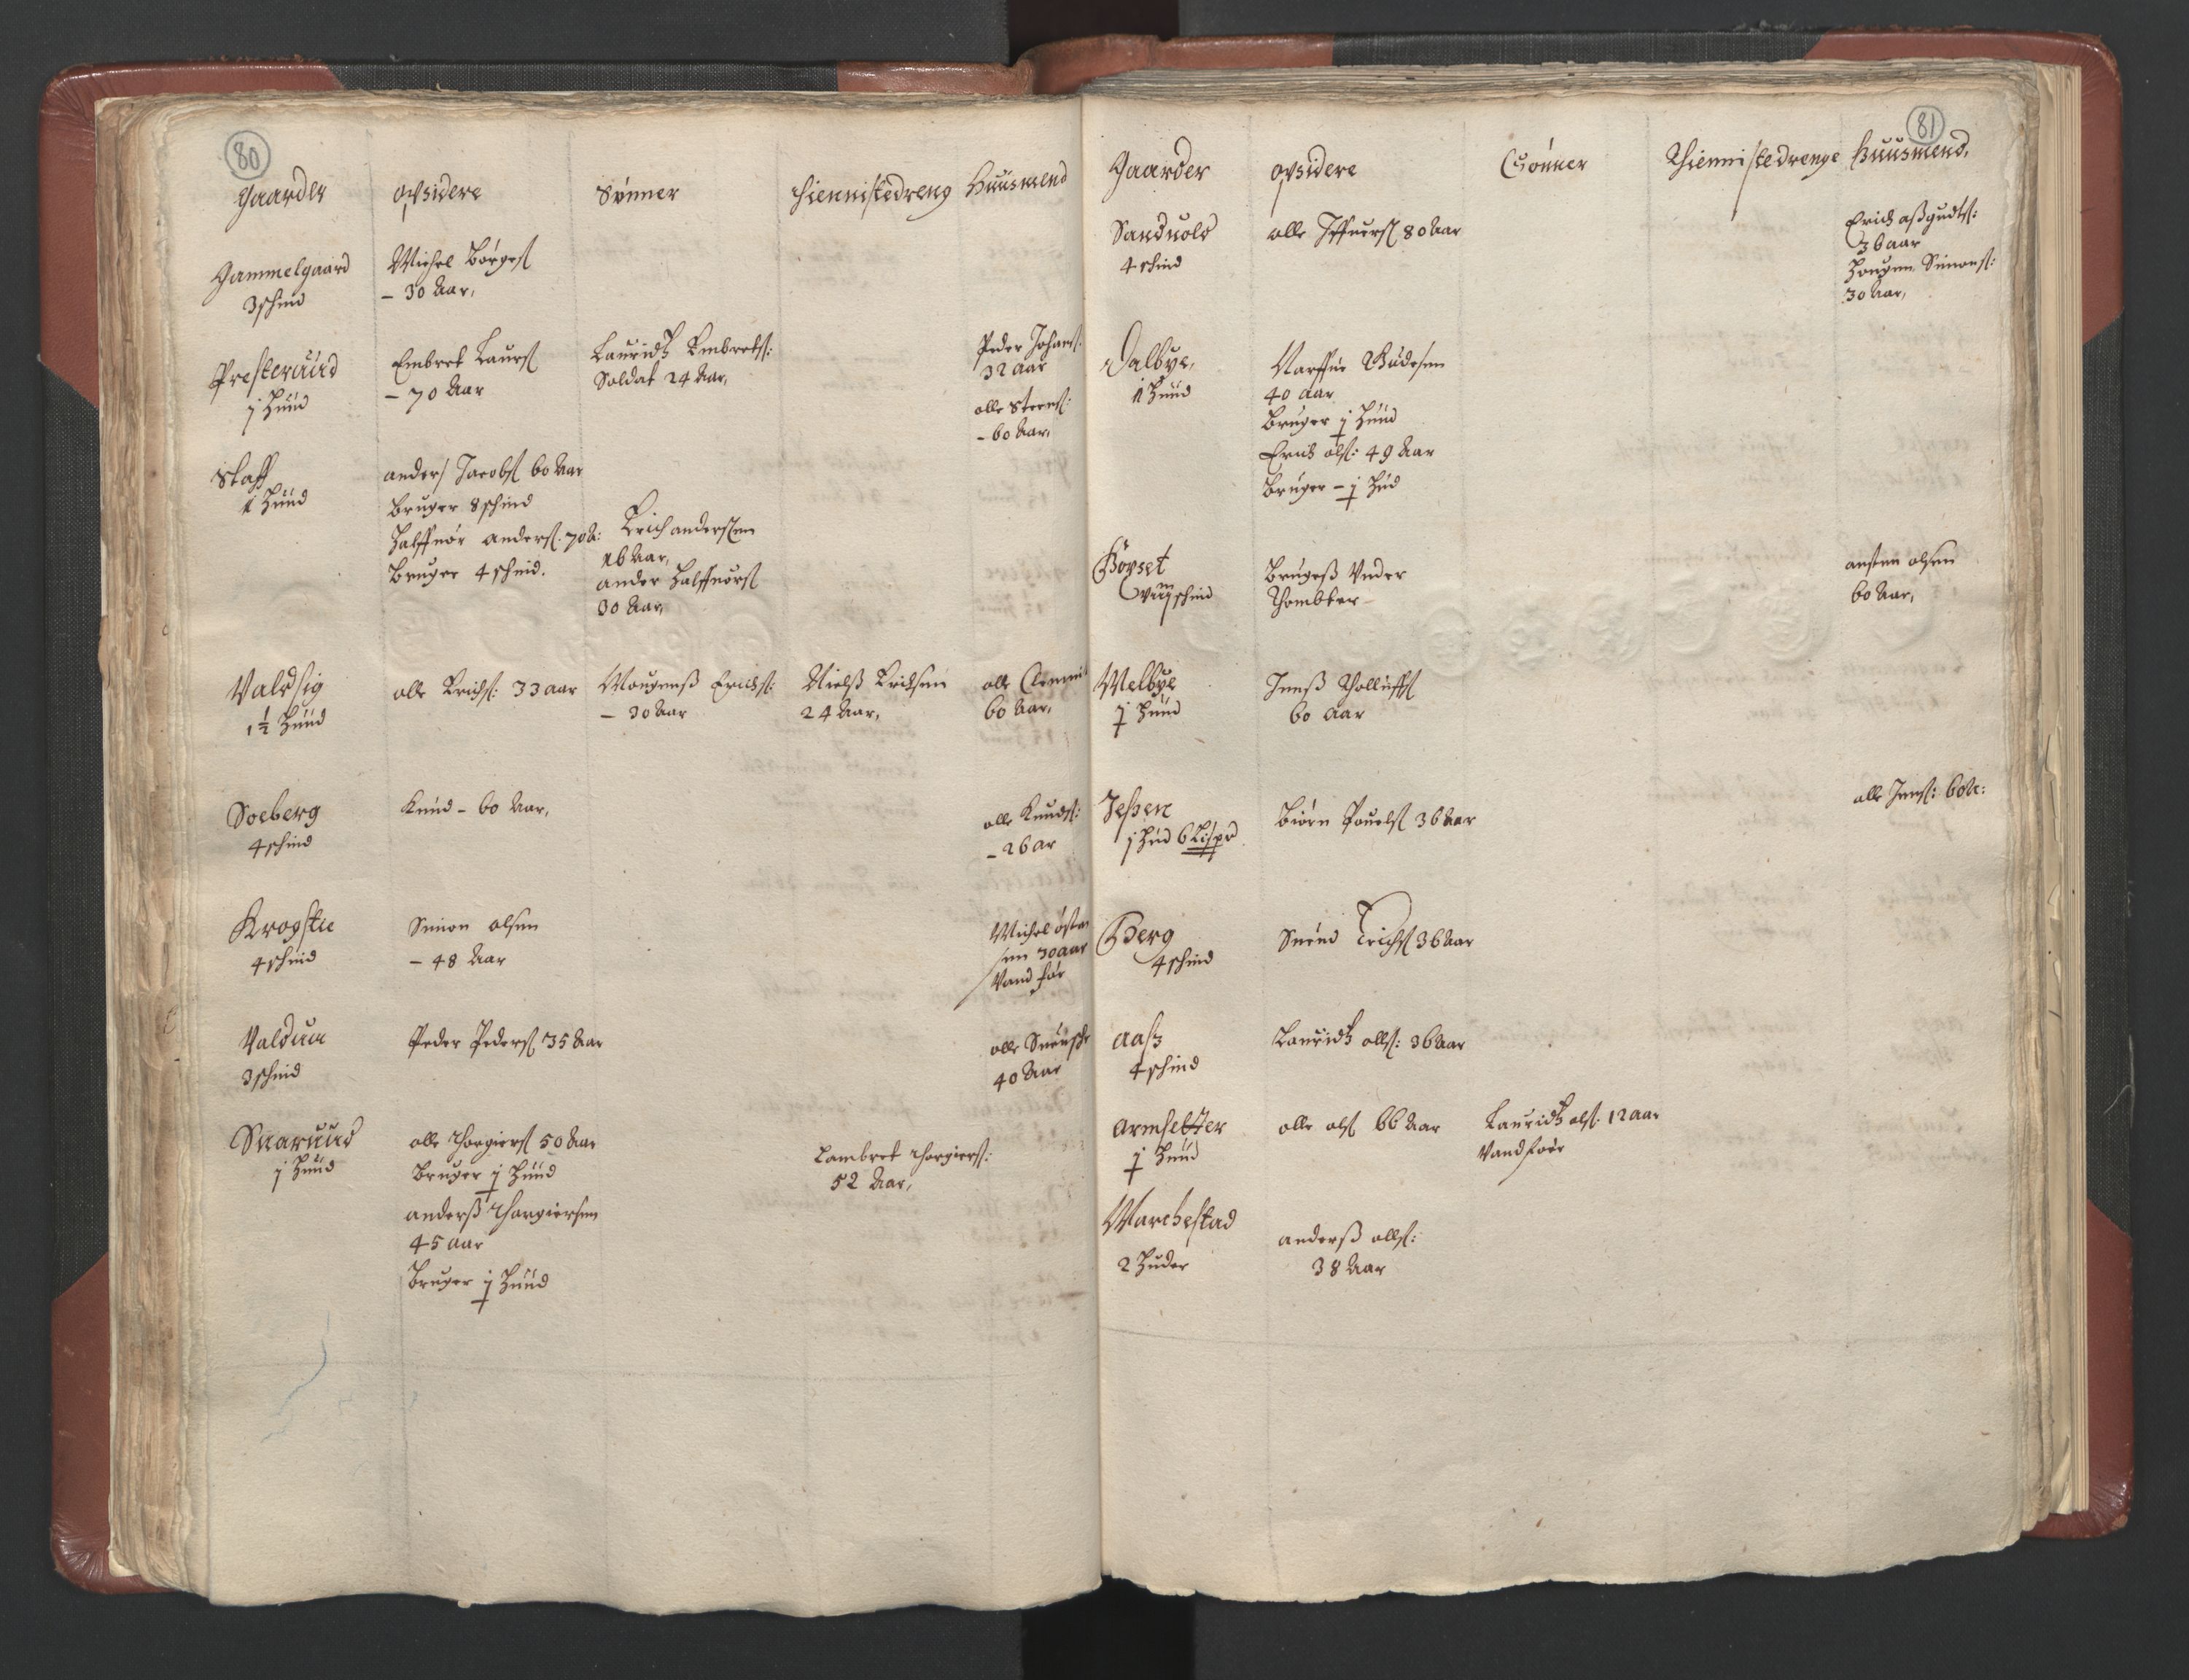 80
Gaarder opsidere Sönner thiennistedreng Huusmend
Gammelgaard
3 schind
Michel Börgeß
– 30 Aar,
Presteruud
j Huud
Embret Laurß
– 70 Aar
Lauridtz Embretß:
Soldat 24 Aar,
Peder Johanß:
32 aar
olle Steenß:
– 60 Aar,
Staff
1 Huud
anders Jacobß 60 Aar
Bruger 8 schind
Halffuor anderß. 70 A:
Bruger 4 schind.
Erich anderssen
16 Aar,
ander Halffuorß
30 Aar,
Valdsig
1½ Huud
olle Erichß: 33 aar
Mougenß Erichß:
– 30 Aar
Nielß Erichsen
24 Aar,
olle Clemmet
60 Aar,
Soeberg
4 schind
Knud – 60 Aar,
olle Knudß:
– 26 ar
Krogstie
4 schind
Simon olsen
– 48 Aar
Michel östen
sen 30 aar
Vand för
Valdum
3 schind
Peder Pederß 35 Aar
olle
40 Aar
Snaruud
j Huud
olle Thorgierß 50 Aar
Bruger j Huud
anderß Thorgiersen
45 aar
Bruger j Huud
Lambret Thorgierß:
52 Aar,
81
Gaarder opsidere Sönner Thiennistedrenge Huusmend,
Sanduold
4 schind
olle Iffuerß 80 Aar
Erich aßgudtß:
36 aar
Hougen Simonß:
30 Aar,
Dalbye,
1 Huud
Narffue Gudesen
40 aar
Bruger j Huud
Erich olß: 49 Aar
Bruger – j Hud
Böyset
schind
Brugeß Vnder
Thombter
austen olsen
60 Aar,
Melbye
j Huud
Jenß Tholluffß
60 aar
Jeßen
j Hud 6 Lispd
Biörn Pouelß 36 Aar
olle Jenß: 60 A:
Berg
4 schind
Suend Erichß 36 Aar
aaß
4 schind
Lauridtz ollß: 36 Aar
Armsetter
j Huud
olle olß 66 Aar
Lauridtz olß. 12 aar
Vandföer
Marchestad
2 Huder
anderß ollß:
38 Aar